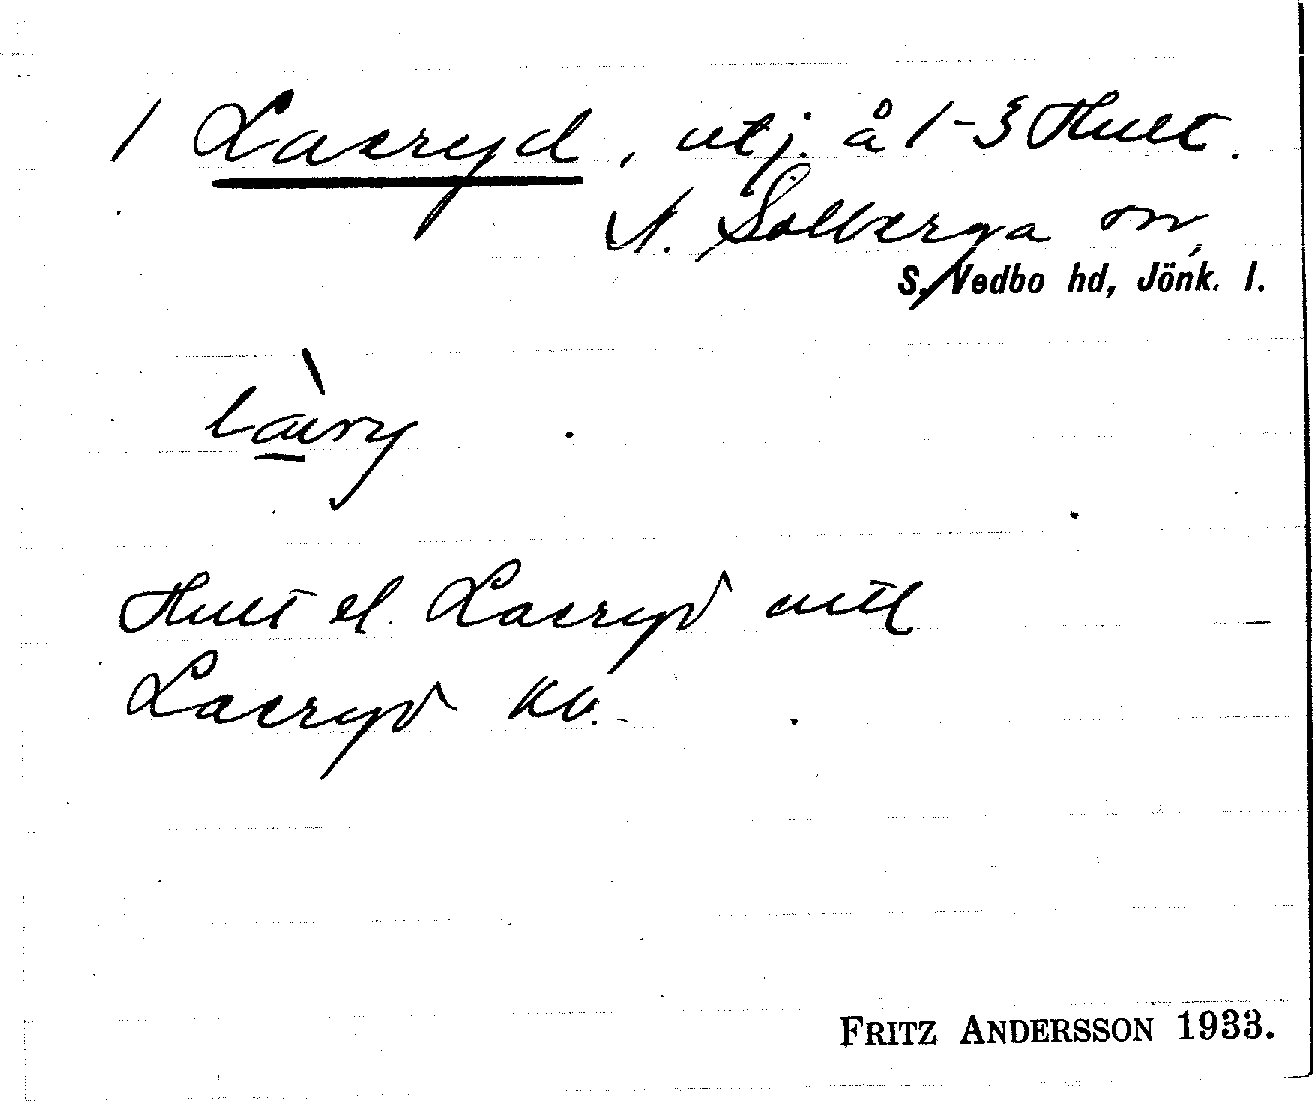 1 Lacryd, utj. å 1-3 Hult.
N. Solberga sn,
S. Vedbo hd, Jönk. l.
Hult el. Lacryd
Lacryd kb.
FRITZ ANDERSSON 1933.